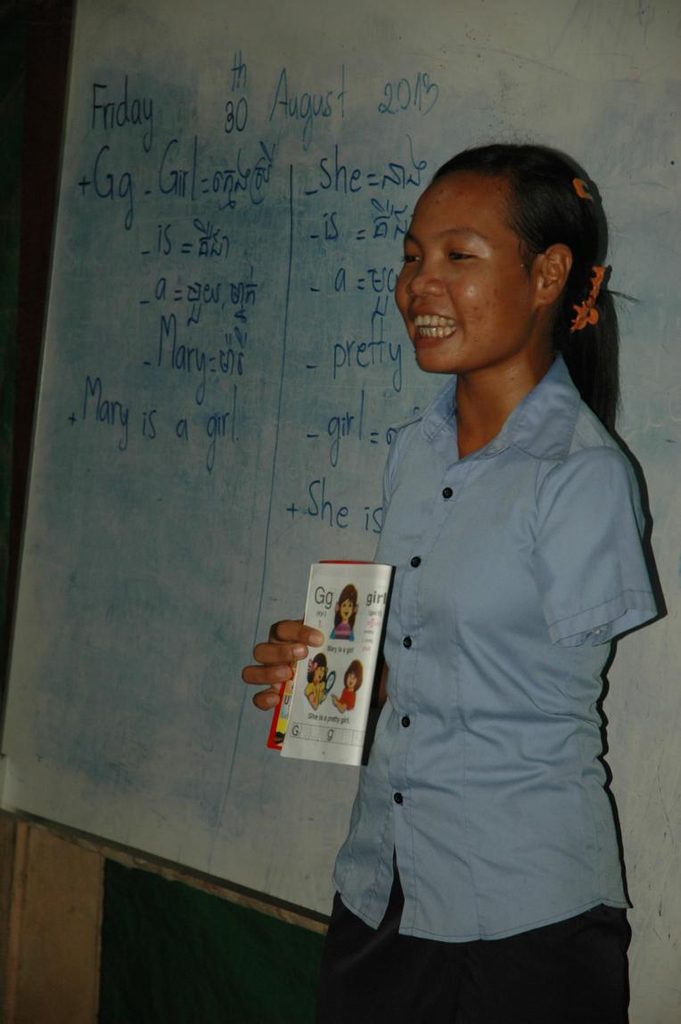 Friday 30th August 2013
+ Gg - Girl = ក្មេងស្រី
- is = គឺជា
- a = មួយ, ម្នាក់
- Mary = ម៉ារី
+ Mary is a girl.
- she = នាង
- is = គឺជា
- a = មួយ
- pretty
- girl =
+ She is
Gg girl
Mary is a girl
She is a pretty girl
G g